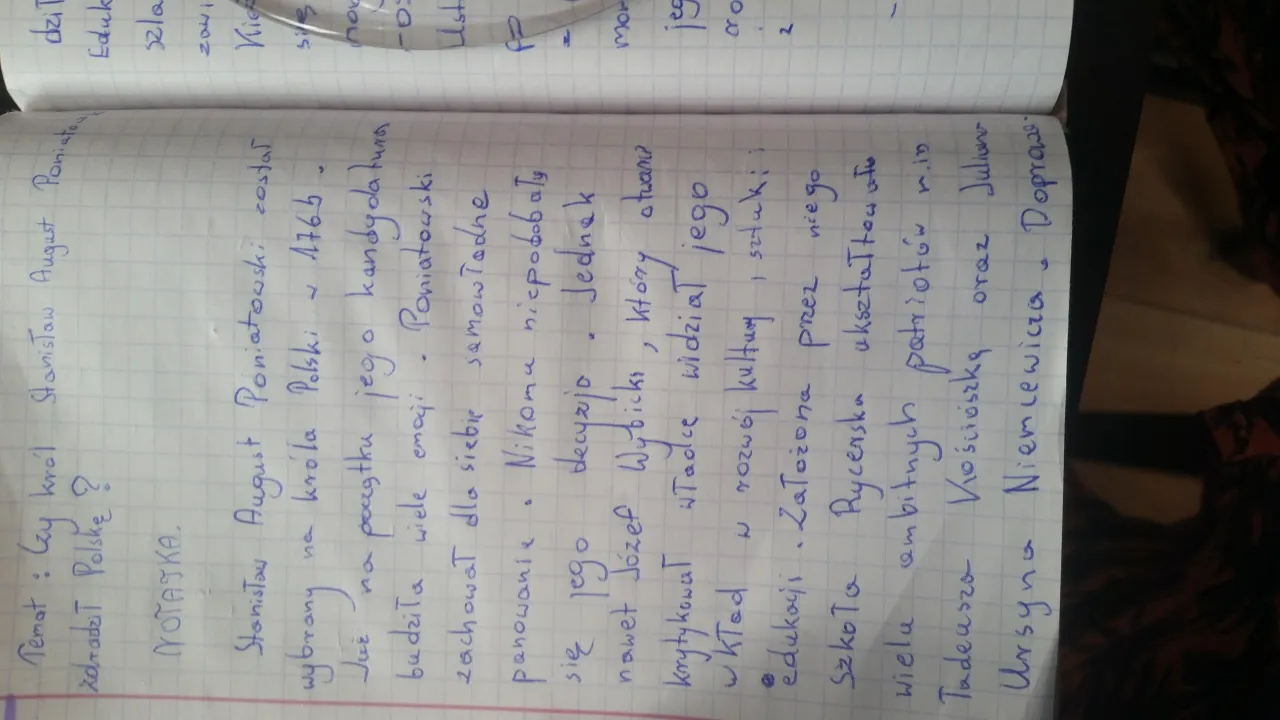 Temat : Czy król Stanisław August Poniatow
zdradził Polskę ?
NOTATKA.
Stanisław August Poniatowski został
wybrany na króla Polski w 1764 .
Już na początku jego kandydatura
budziła wiele emocji . Poniatowski
zachował dla siebie samowładne
panowanie . Nikomu niepodobały
się jego decyzje . Jednak
nawet Józef Wybicki , który otwarcie
krytykował władce widział jego
wkład w rozwój kultury , sztuki i
edukacji . Założona przez niego
Szkoła Rycerska ukształtowała
wielu ambitnych patriotów m.in
Tadeusza Kościoszkę oraz Juliana
Ursyna Niemcewicza . Doprowa-
dził
Eduk
szla
zawi
Kie
się
now
mon
jeg